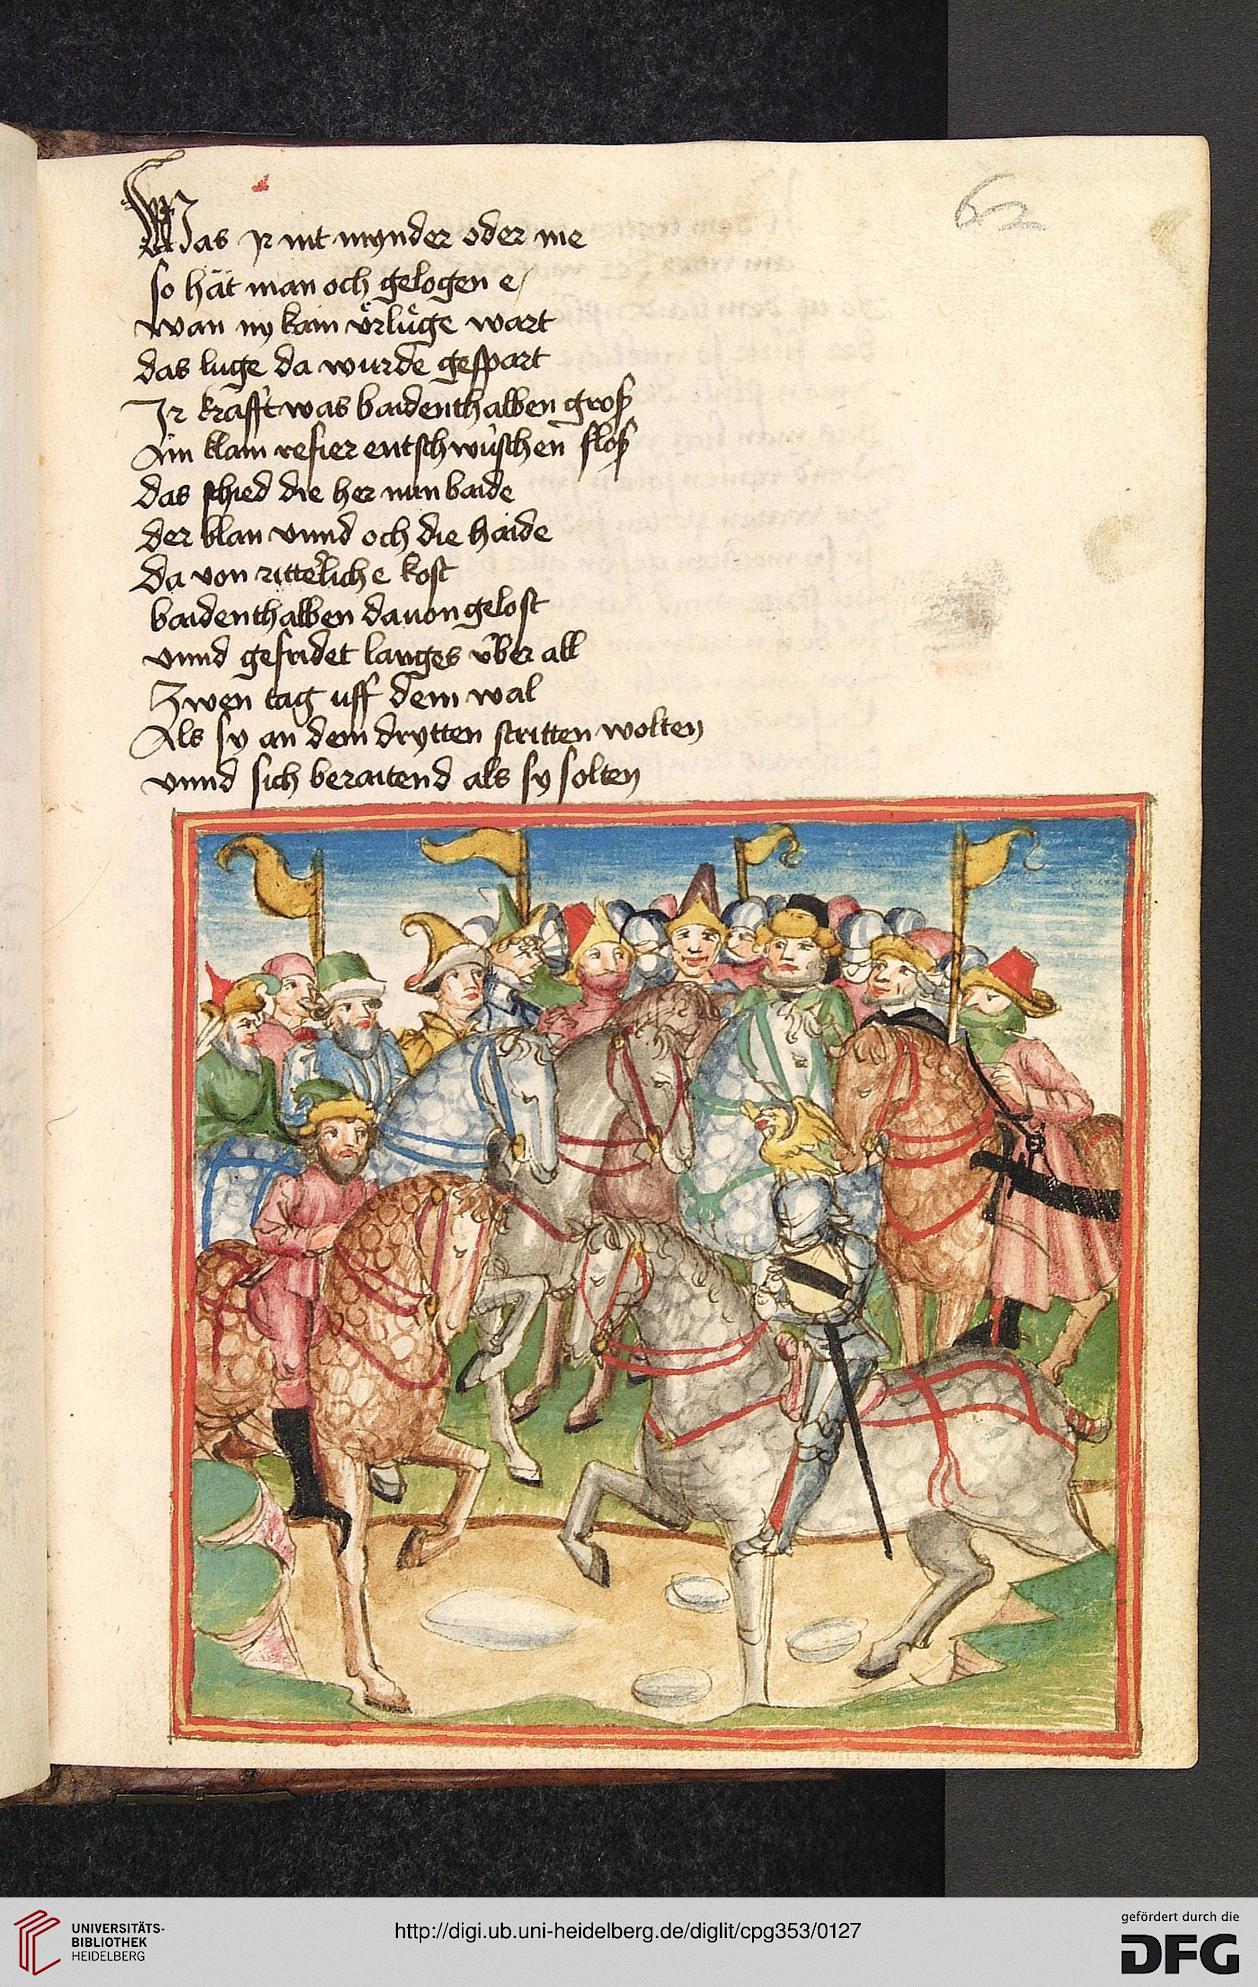 62
Was ir nit mynder oder me
so hät man och gelogen e
wan ny kain v̊rlůge wart
das luge da wurde gespart
Ir krafft was baidenthalben groß
Ain klain refier entschwüschen floß
das schied die her nun baide
der klan vnnd och die haide
Da von ritterliche kost
baidenthalben dauon gelost
vnnd gefridet langes über all
Zwen tag uff dem wal
Als sy an dem drytten stritten wolten
vnnd sich beraitend als sy solten
UNIVERSITÄTS-
BIBLIOTHEK
HEIDELBERG
http://digi.ub.uni-heidelberg.de/diglit/cpg353/0127
gefördert durch die
DFG